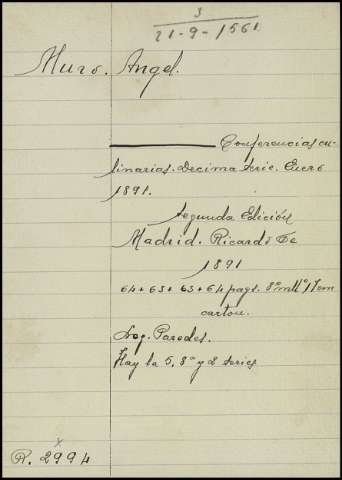 3
21-9-1561
Muro. Angel.
Conferencias cu-
linarias. Decima serie. Enero
1891.
Segunda Edición
Madrid. Ricardo Fe
1891
64 + 63 + 63 + 64 pags. 8º mllª 17 cm
carton.
Leg. Paredes.
Hay la 5, 8ª y 2 series
R. 2994